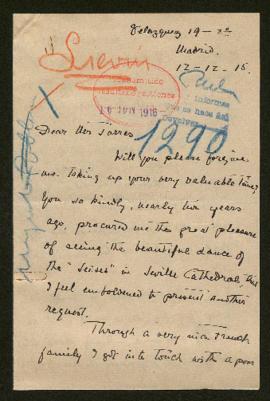 Velazquez 19 -
Madrid.
12-12-15.
1290
Dear Mrs Torres
Will you please forgive
me taking up your very valuable time?
You so kindly, nearly two years
ago, procured me the great pleasure
of seeing the beautiful dance of
the "Seises" in Seville Cathedral that
I feel emboldened to present another
request.
Through a very nice French
family I got into touch with a poor